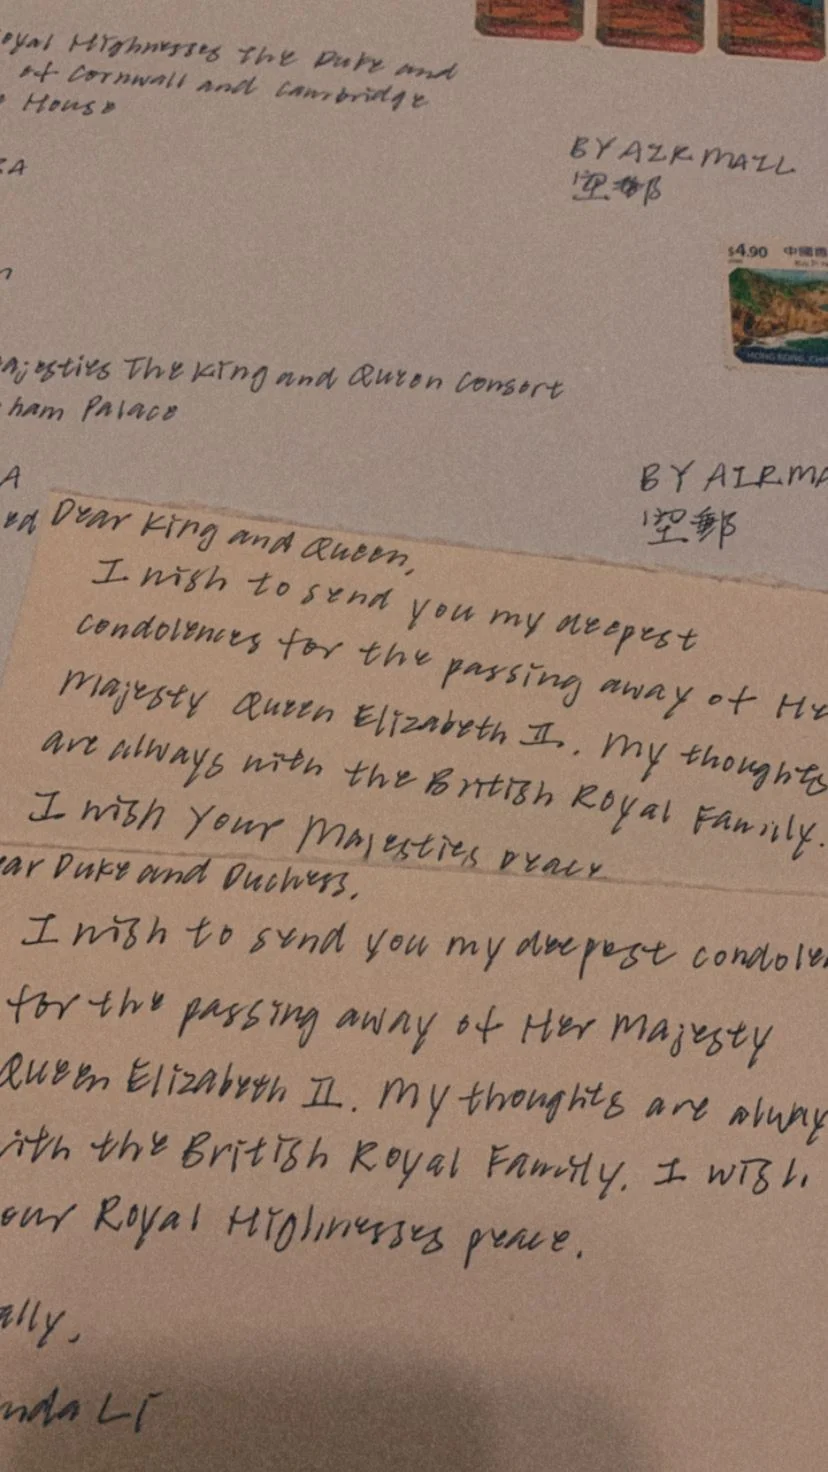 oyal Highnesses The Duke and
of Cornwall and Cambridge
House
BY AIR MAIL
空郵
$4.90 中國香
HONG KONG, CHI
ajesties The King and Queen Consort
ham Palace
BY AIRMA
空郵
ed
Dear King and Queen,
I wish to send you my deepest
condolences for the passing away of He
Majesty Queen Elizabeth II. My thoughts
are always with the British Royal Family.
I wish Your Majesties peace
ear Duke and Duchess,
I wish to send you my deepest condolen
for the passing away of Her Majesty
Queen Elizabeth II. My thoughts are alway
with the British Royal Family. I wish
our Royal Highnesses peace.
ally,
nda Li